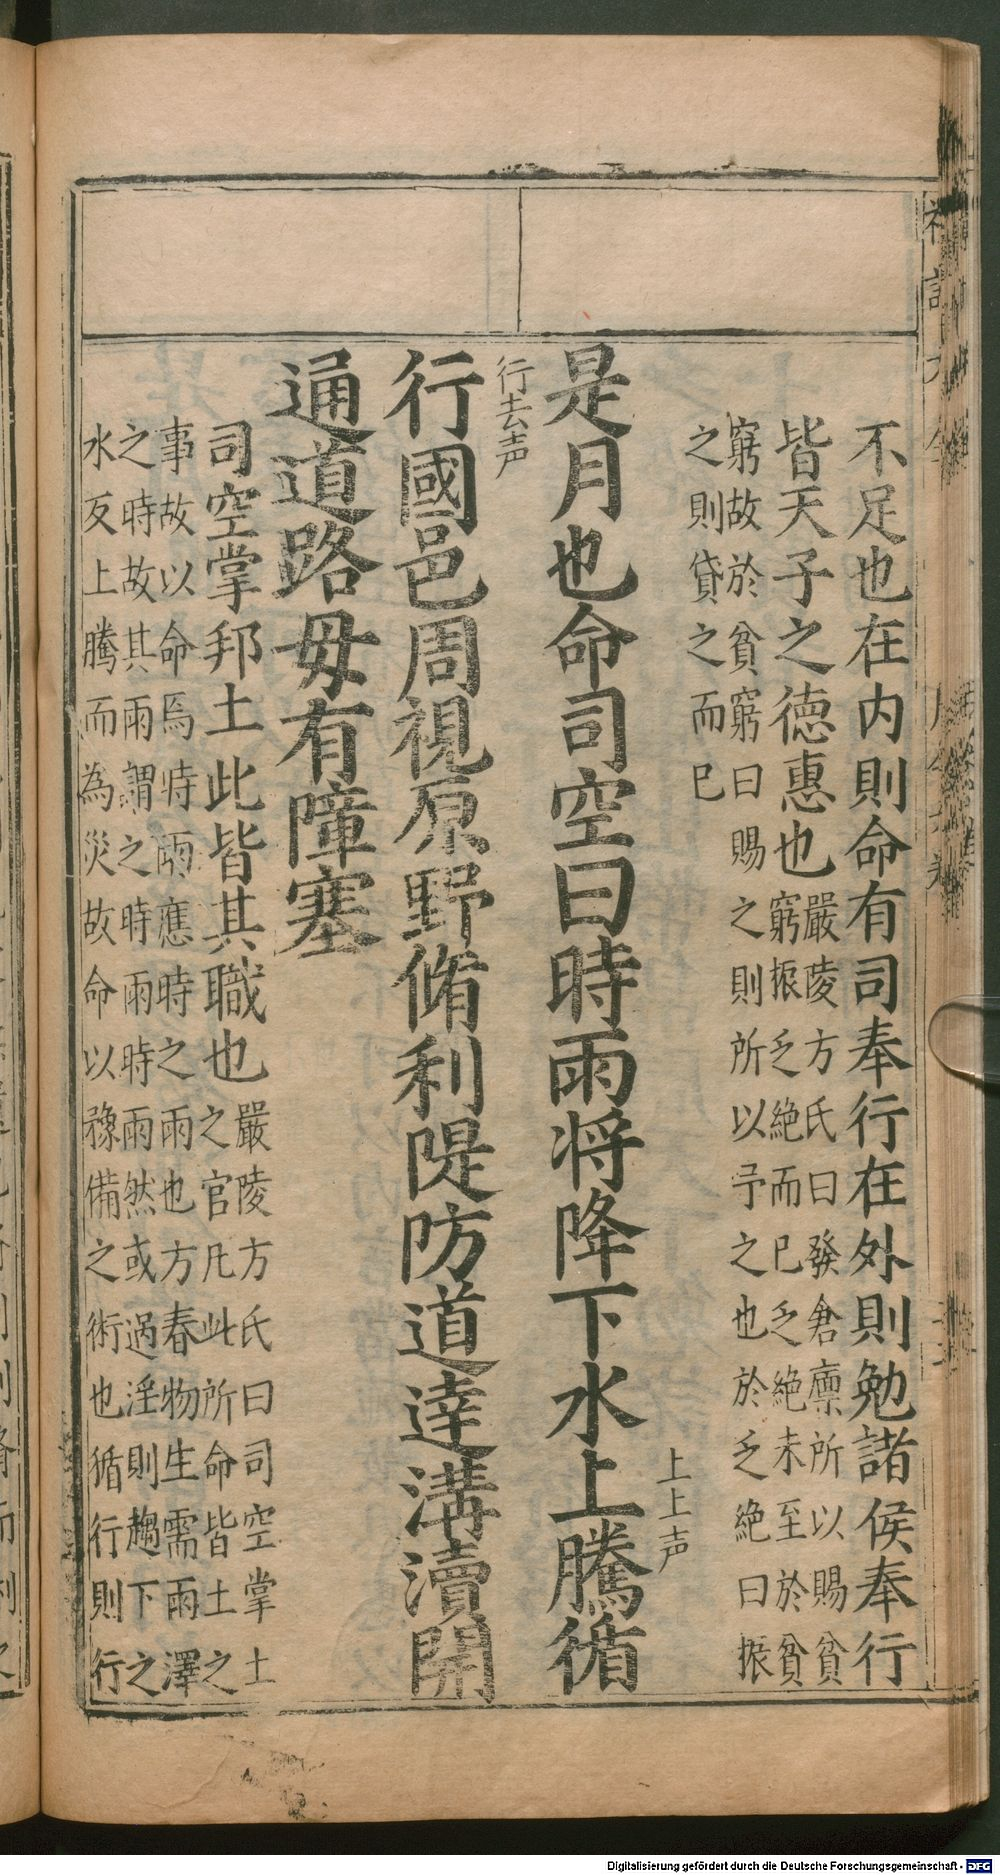 不足也在内則命有司奉行在外則勉諸侯奉行
皆天子之德惠也
嚴陵方氏曰發倉廪所以賜貧
窮振乏絶而已乏絶未至於貧
窮故於貧窮曰賜之則所以予之也於乏絶曰振
之則貸之而已
上上声
是月也命司空曰時雨将降下水上騰循
行去声
行國邑周視原野脩利隄防道達溝瀆開
通道路毋有障塞
司空掌邦土此皆其職也
嚴陵方氏曰司空掌土
之官凡此所命皆土之
事故以命焉時雨應時之雨也方春物生需雨澤
之時故其雨謂之時雨時雨然或過淫則趨下之
水反上騰而為災故命以豫備之術也循行則行
Digitalisierung gefördert durch die Deutsche Forschungsgemeinschaft - DFG